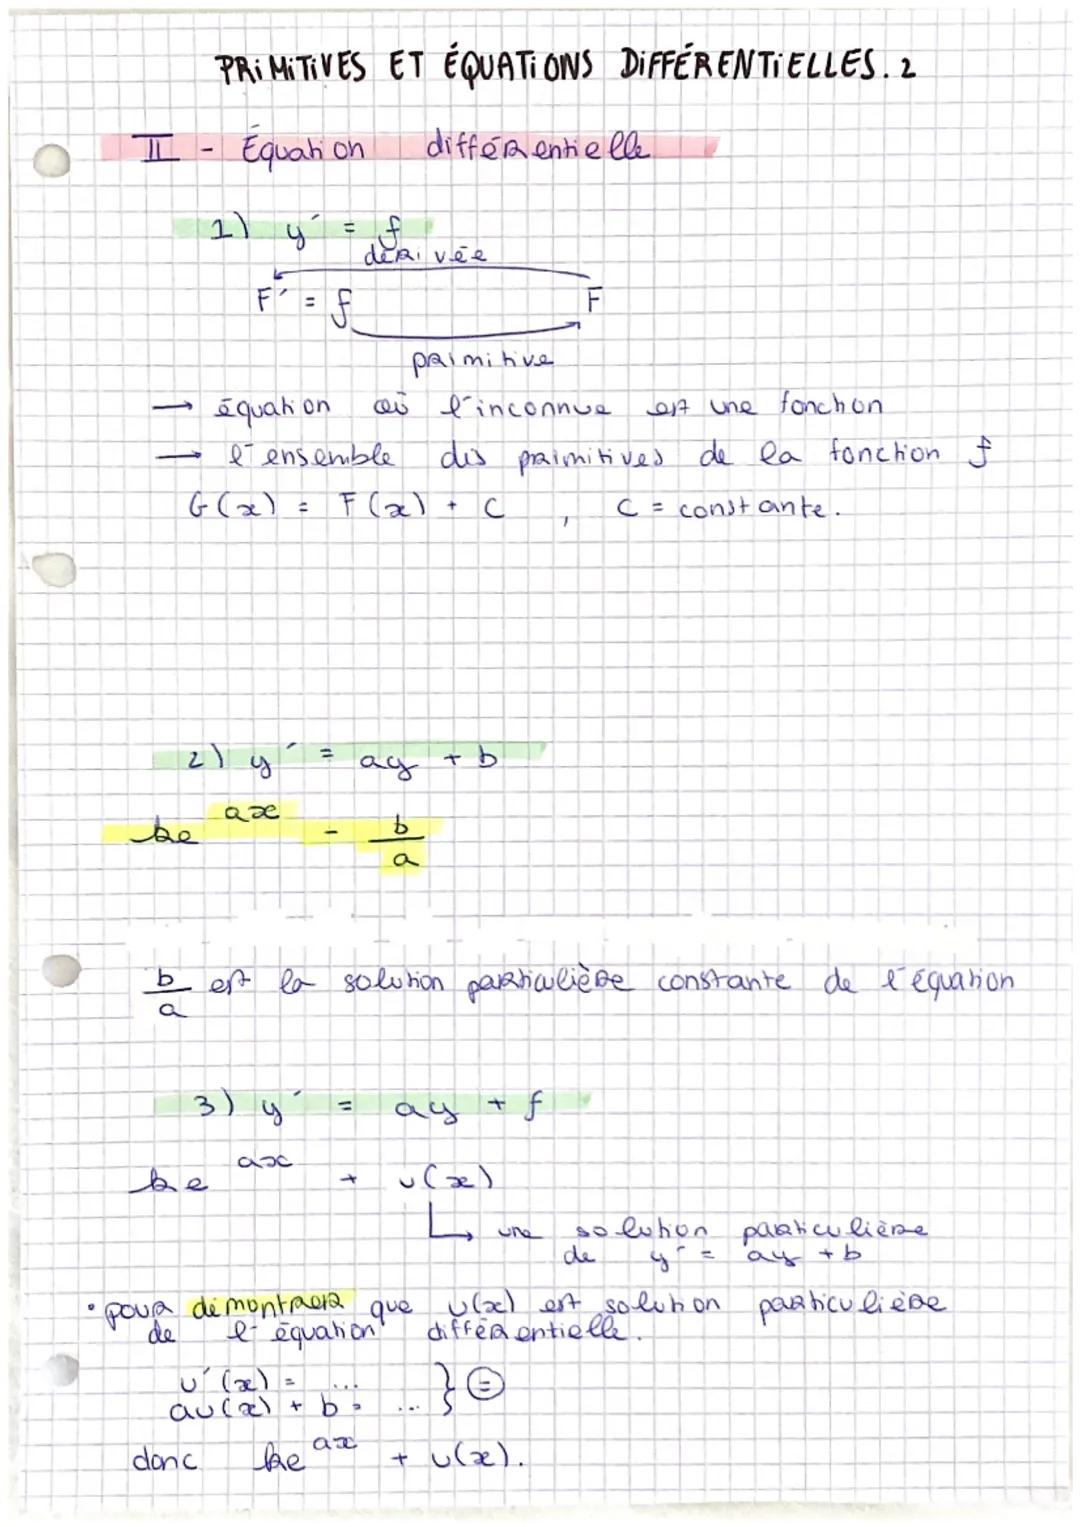 PRIMITIVES ET ÉQUATIONS DIFFÉRENTIELLES. 2
II - Équation différentielle
1) y' = f
dérivée
F' = f F
primitive
→ équation où l'inconnue est une fonction
→ l'ensemble des primitives de la fonction f
G(x) = F(x) + C , C = constante.
2) y' = ay + b
ke^{ax} - b/a
b/a est la solution particulière constante de l'équation
3) y' = ay + f
ke^{ax} + u(x)
↳ une solution particulière
de y' = ay + b
• pour démontrer que u(x) est solution particulière
de l'équation différentielle.
u'(x) = ... } =
au(x) + b = ...
donc ke^{ax} + u(x).